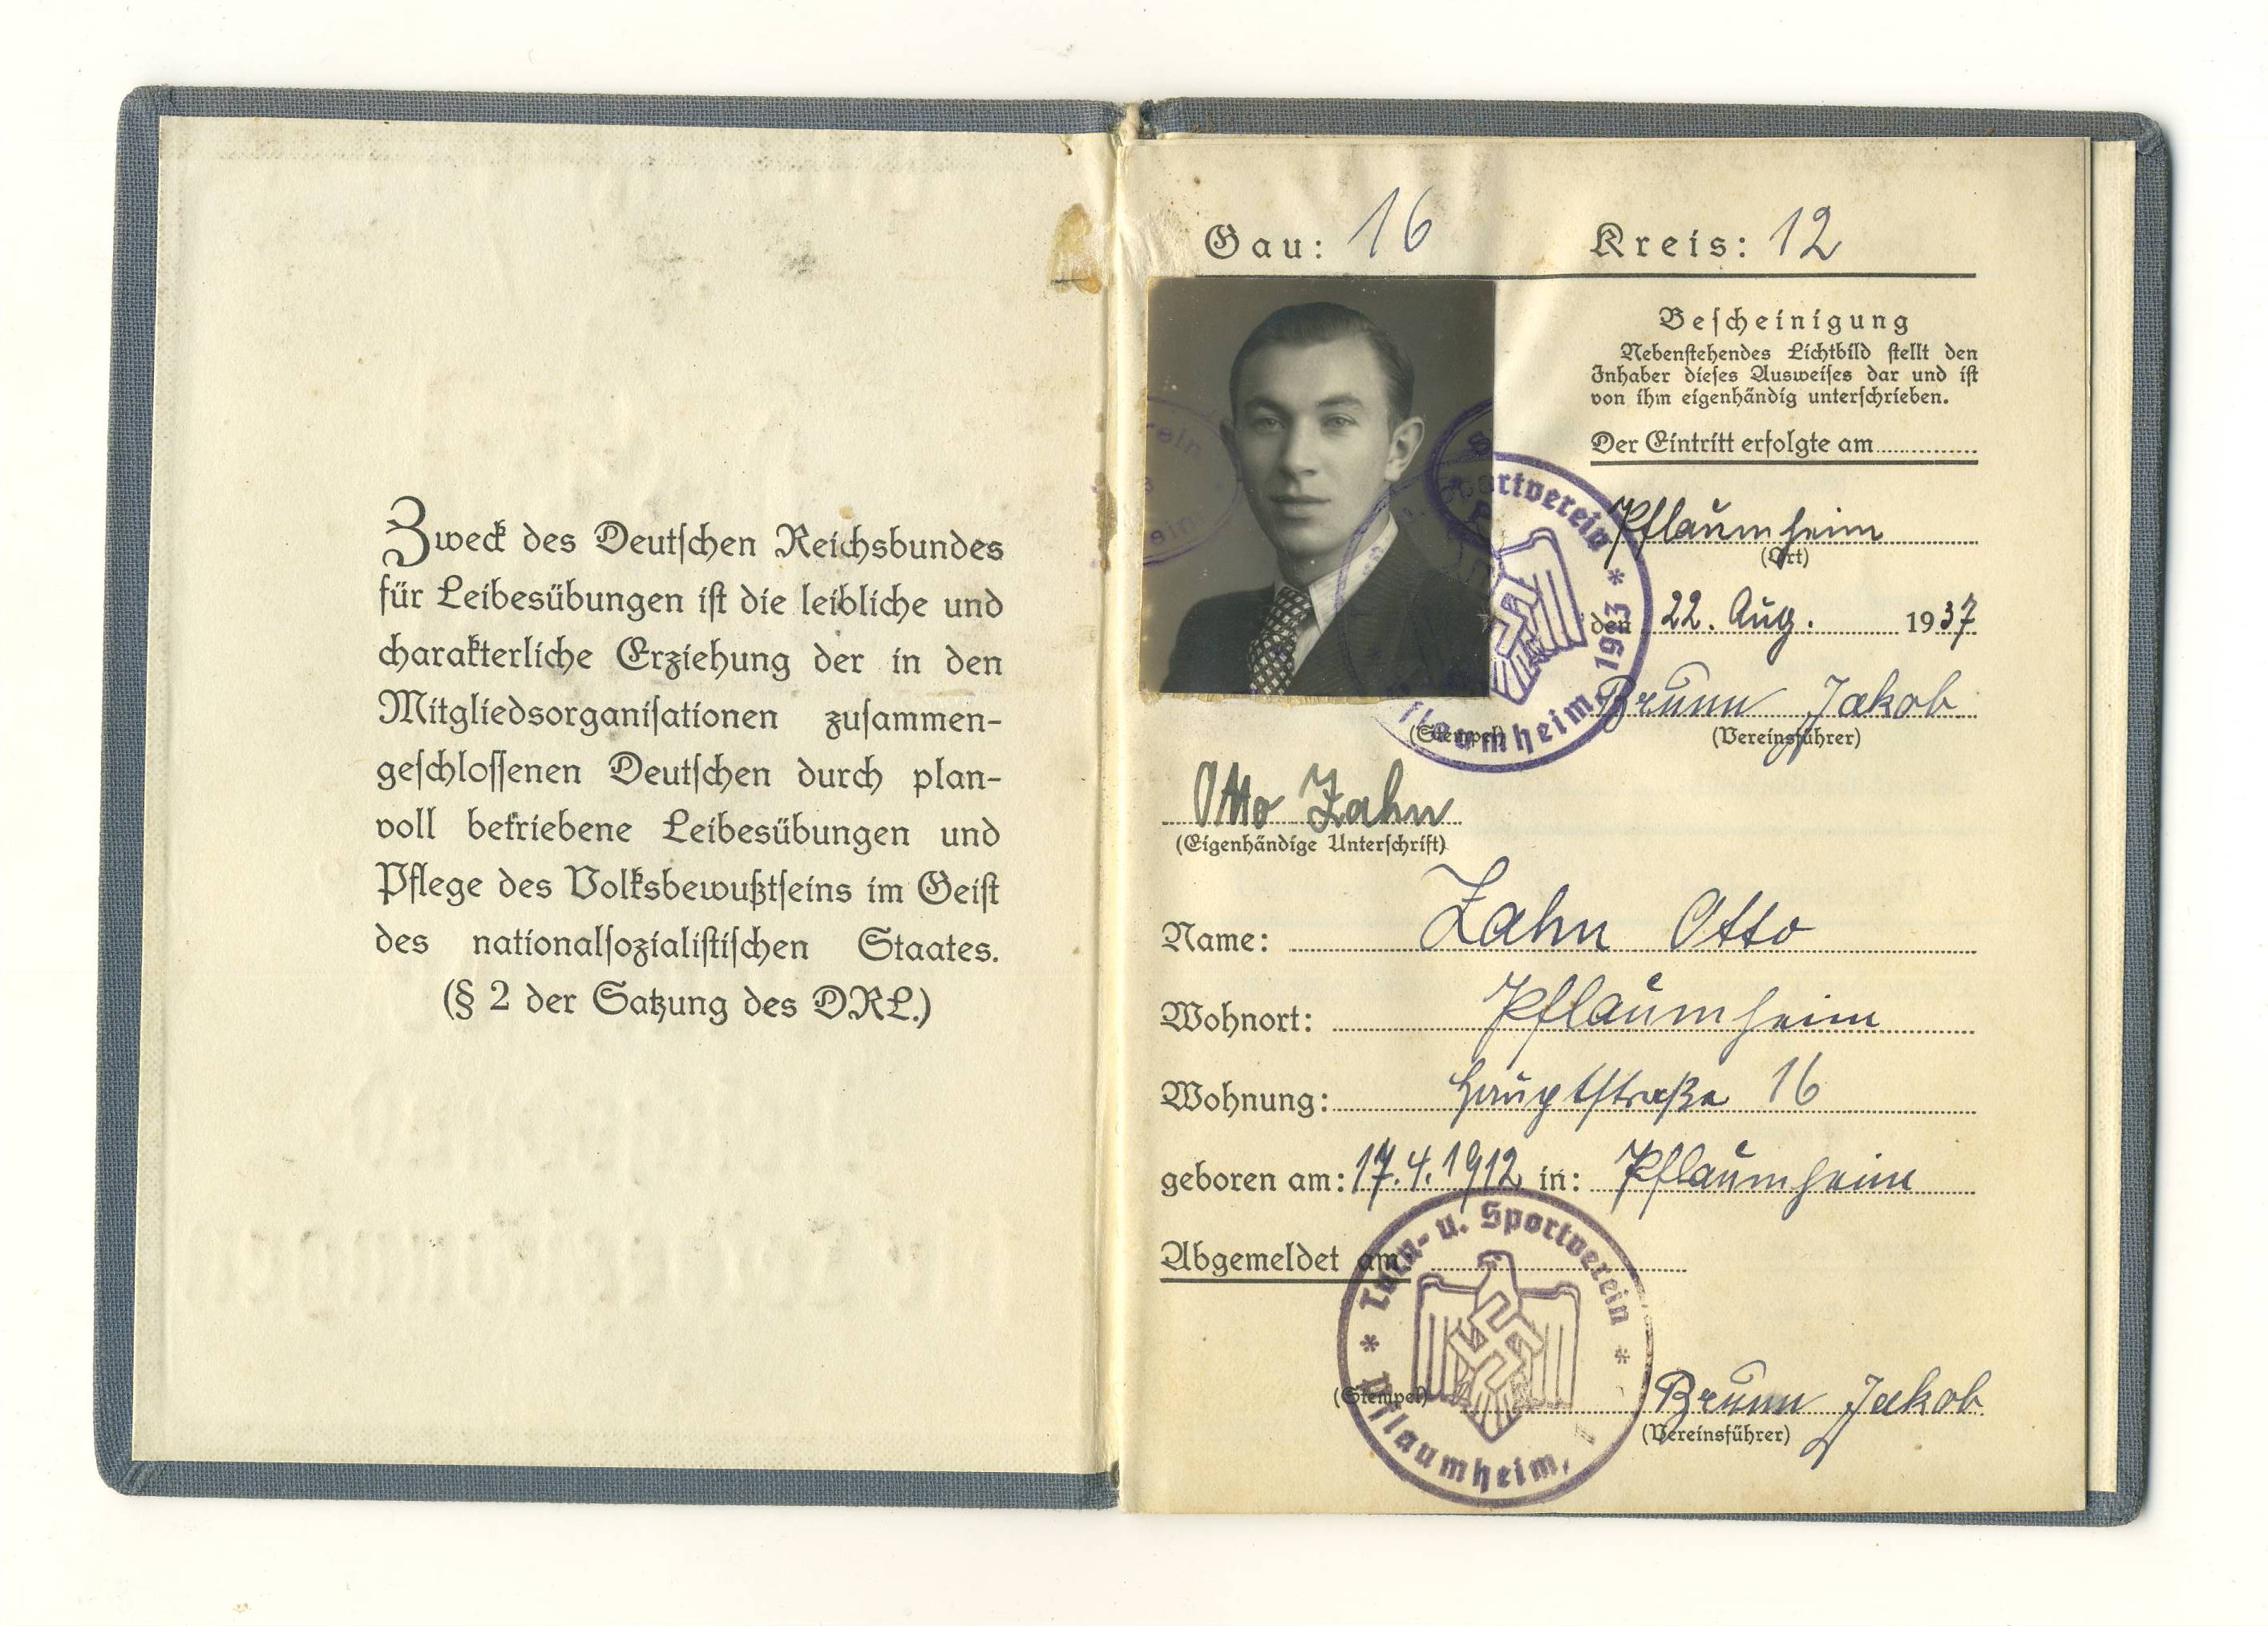 Zweck des Deutschen Reichsbundes
für Leibesübungen ist die leibliche und
charakterliche Erziehung der in den
Mitgliedsorganisationen zusammen-
geschlossenen Deutschen durch plan-
voll betriebene Leibesübungen und
Pflege des Volksbewußtseins im Geist
des nationalsozialistischen Staates.
(§ 2 der Satzung des DRL.)
Gau: 16 Kreis: 12
Bescheinigung
Nebenstehendes Lichtbild stellt den
Inhaber dieses Ausweises dar und ist
von ihm eigenhändig unterschrieben.
Der Eintritt erfolgte am
Pflaumheim
(Ort)
den 22. Aug. 1937
Brunn Jakob
(Stempel) (Vereinsführer)
Sportverein
Pflaumheim, 1923
Otto Zahn
(Eigenhändige Unterschrift)
Name: Zahn Otto
Wohnort: Pflaumheim
Wohnung: Hauptstraße 16
geboren am: 17.4.1912 in: Pflaumheim
Abgemeldet am
Turn- u. Sportverein
Pflaumheim,
(Stempel) Brunn Jakob
(Vereinsführer)